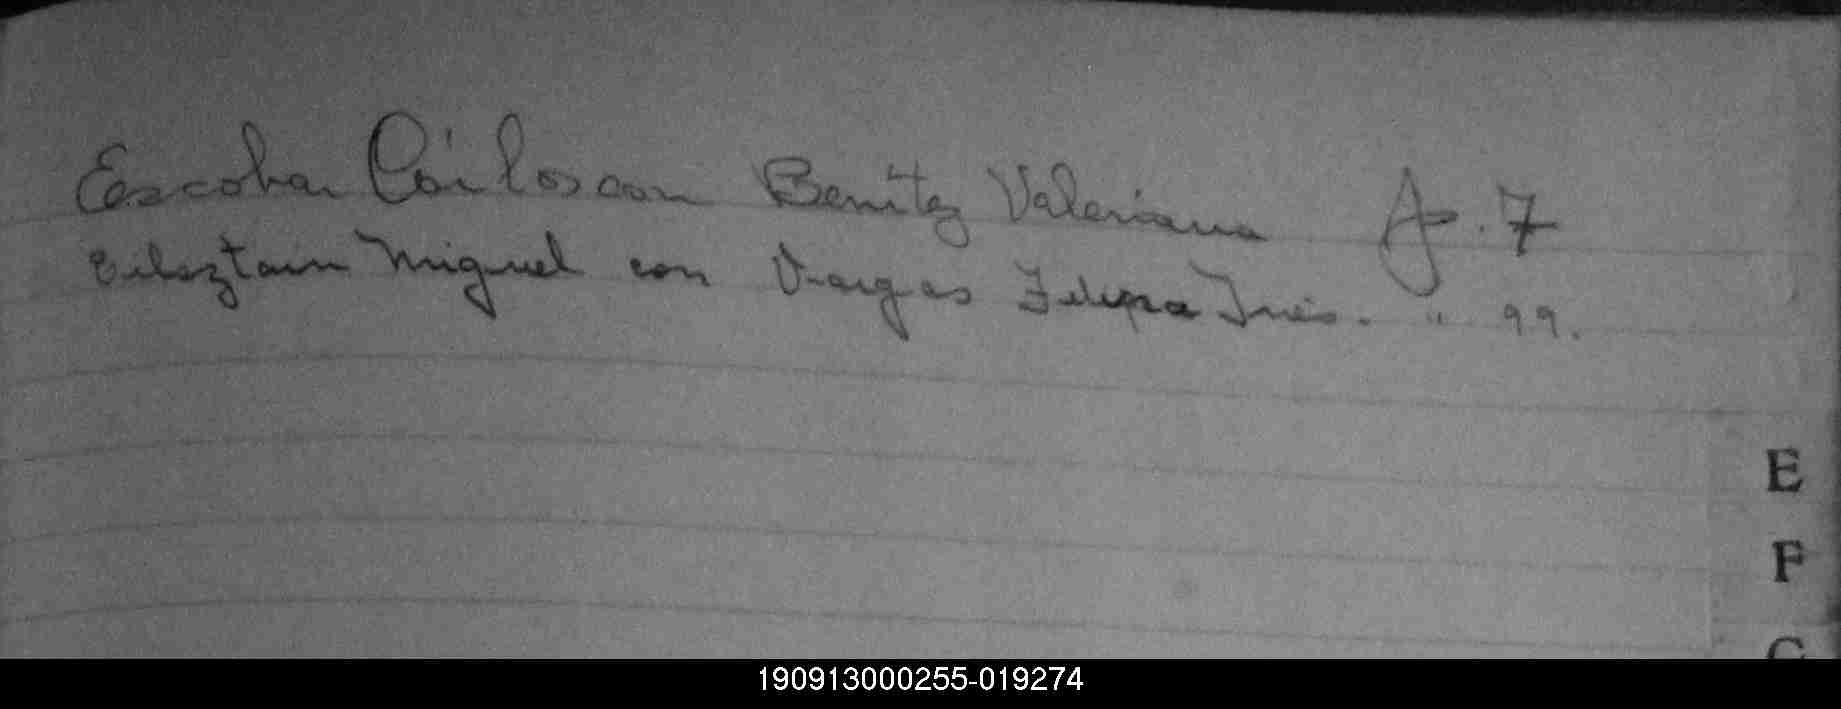 Escobar Cárlos con Benitez Valeriana F. 7
Eilsztain Miguel con Vargas Felipa Inés. " 99.
E
F
G
190913000255-019274